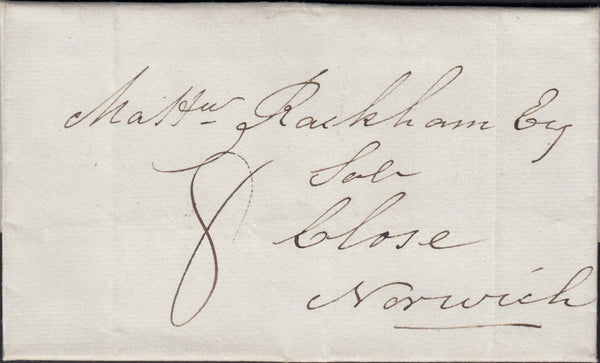 Matt^w Rackham Esq
Solr
8 Close
Norwich